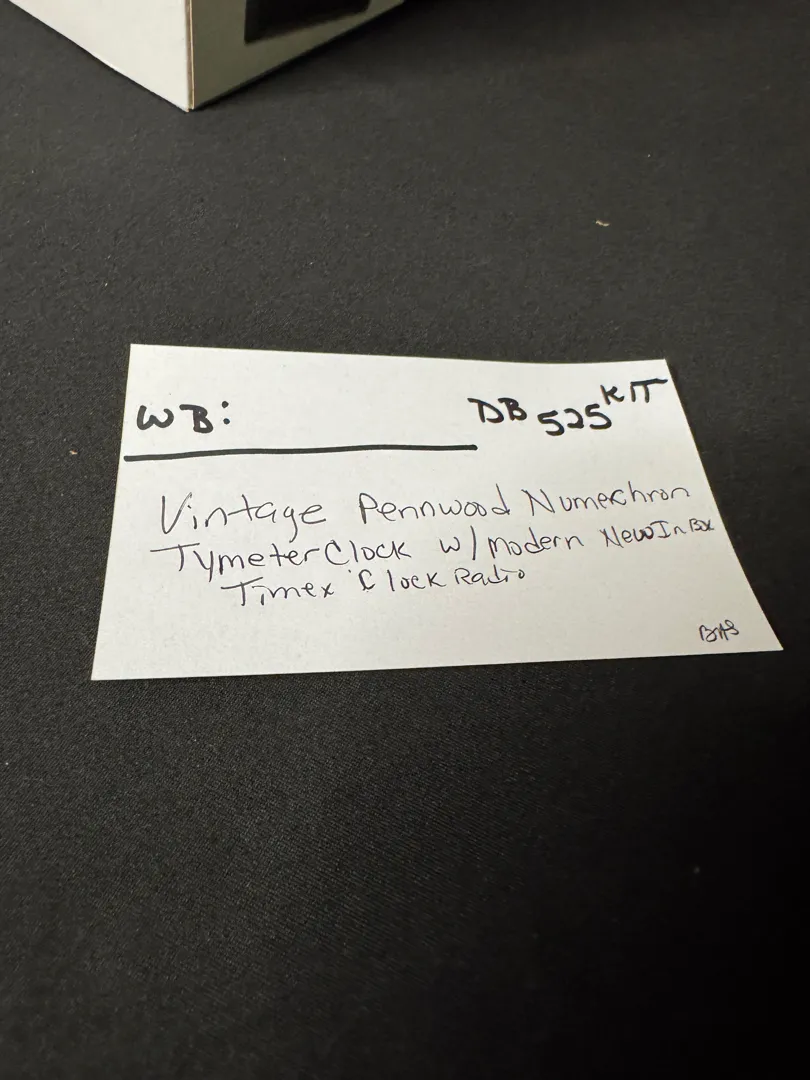 WB: DB 525 KIT
Vintage Pennwood Numechron
Tymeter Clock w/ Modern New In Box
Timex Clock Radio